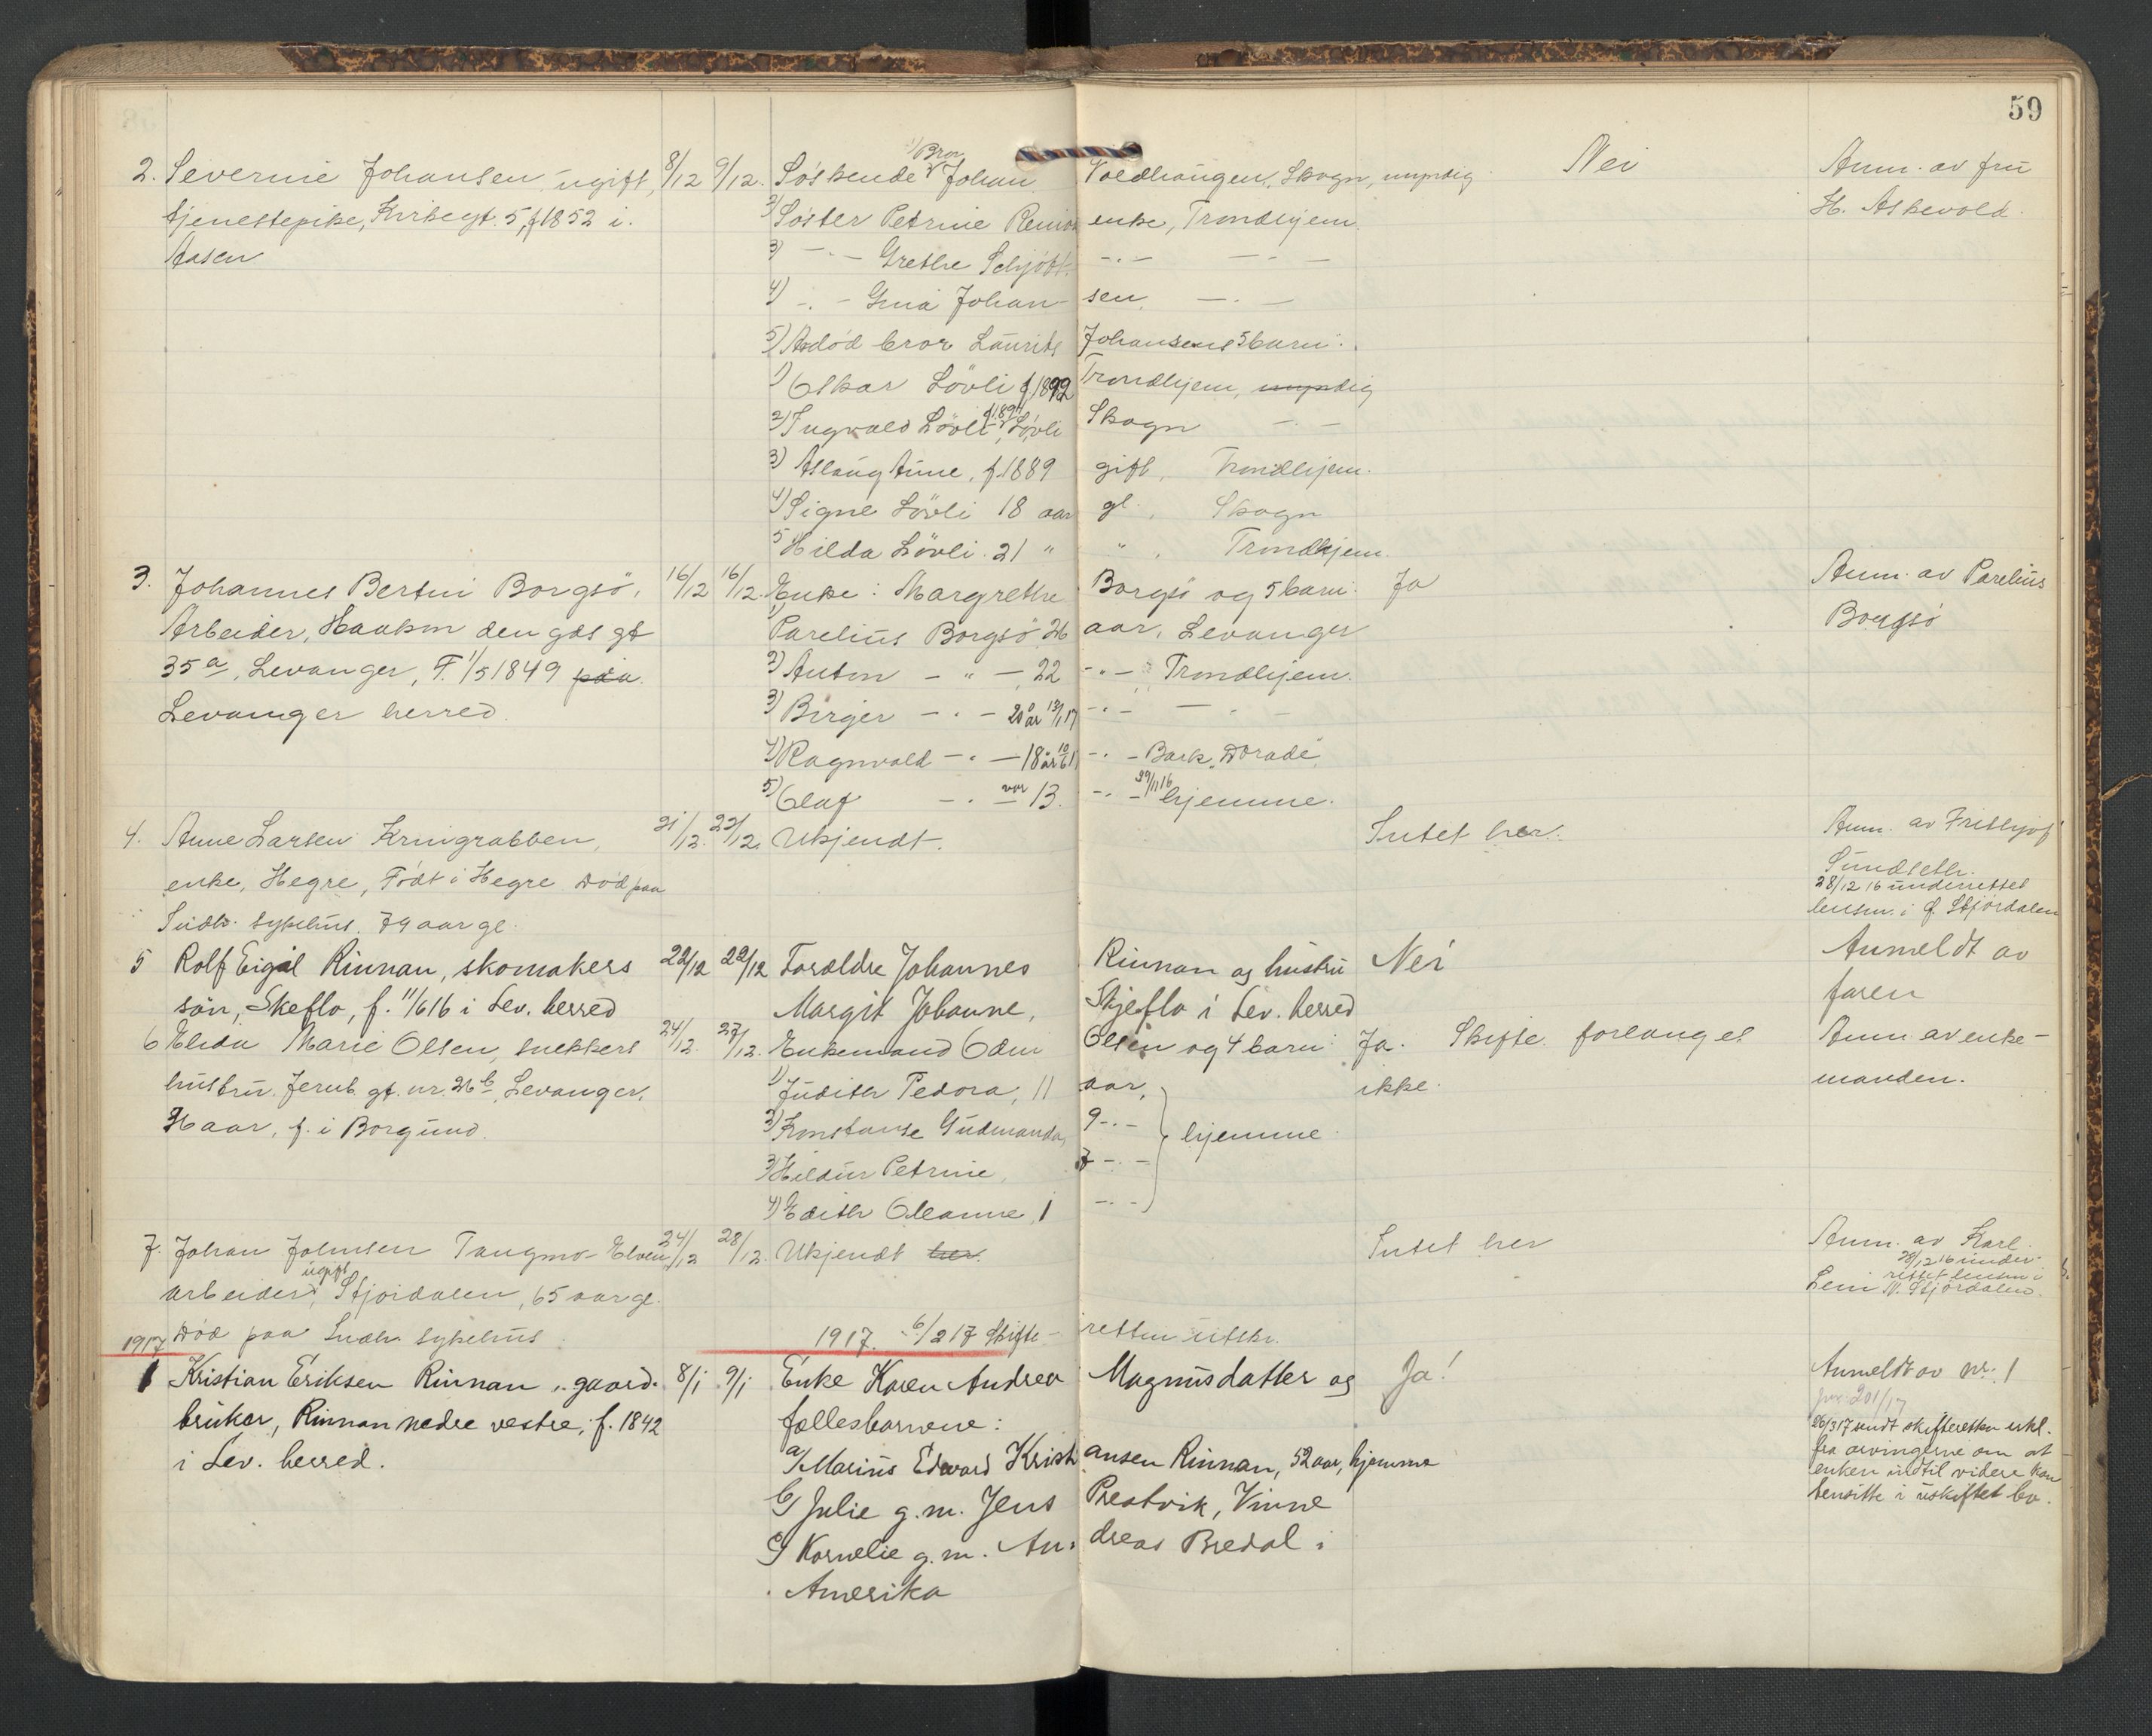 59
2. Severine Johansen ugift, 8/12 9/12. Söskende 1) Bror Johan Voldhaugen, Skogn, myndig Nei Anm. av fru
tjenestepike, Kirkegt. 5, f 1852 i 2) Söster Petrine enke, Trondhjem. H. Askevold.
Aasen 3) -"- Grethe Schjött -"- -"-
4) -"- Gina Johansen, -"-
5) Avdöd bror Laurits Johansens 5 barn:
1) Oskar Lövli f 1892 Trondhjem, myndig
2) Ingvald Lövli f 189 , Lövli Skogn -"-
3) Aslaug Aune, f. 1889 gift, Trondhjem.
4) Signe Lövli 18 aar gl., Skogn
5 Hilda Lövli 21 " " , Trondhjem.
3. Johannes Bertin Borgsö, 16/12 16/12. Enke: Margrethe Borgsö og 5 barn: Ja Anm. av Parelius
Arbeider, Haakon den gds gt 1) Parelius Borgsö 26 aar, Levanger Borgsö
35 a, Levanger, F. 1/5 1849 paa 2) Anton -"- 22 -"- Trondhjem.
Levanger herred. 3) Birger -"- 20 år 13/1 17 -"- -"-
4) Ragnvald -"- 18 år -"- Bark "Dorade"
5) Olaf -"- var 13. -"- 29/11 16 hjemme.
4. Anne Larsen Kringrabben, 21/12. 22/12. Ukjendt. Intet her. Anm. av Frithjof
enke, Hegre, Födt i Hegre Död paa Sundseth.
Indh. sykehus. 79 aar gl. 28/12 16 underrettet
lensm. i Ö. Stjördalen
5 Rolf Eigil Rinnan, skomakers 22/12 22/12 Foræeldre Johannes Rinnan og hustru Nei Anmeldt av
sön, Skeflo, f. 11/6 16 i Lev. herred Margit Johanne, Skjeflo i Lev. herred faren
6 Elida Marie Olsen, snekkers 24/12. 27/12. Enkemand Odin Olsen og 4 barn: Ja. Skifte forlanges Anm. av enke-
hustru. Jernb. gt. nr. 26 b, Levanger, 1) Judith Pedora, 11 aar, ikke. manden.
36 aar, f. i Borgund. 2) Konstanse Gudmanda, 9 -"- hjemme.
3) Hildur Petrine, 7 -"-
4) Edith Oleanne, 1 -"-
7. Johan Johnsen Tangmo-Elven 24/12 28/12. Ukjendt her. Intet her Anm. av Karl
arbeider, ugift Stjördalen, 65 aar gl. 28/12 16 under-
rettet lensm i
Lein N. Stjördalen.
Död paa Indh. sykehus
1917 1917. 6/2 17 Skifteretten utskr.
1 Kristian Eriksen Rinnan, gaard- 8/1 9/1 Enke Karen Andrea Magnusdatter og Ja! Anmeldt av nr. 1
bruker, Rinnan nedre vestre, f. 1842 fællesbarnene: jnr 201/17
i Lev. herred. a/ Marius Edvard Kristiansen Rinnan, 52 aar, hjemme 20/3 17 sendt skifteretten erkl.
fra arvingerne om at
b/ Julie g.m. Jens Prestvik, Vinne enken indtil videre kan
hensitte i uskiftet bo.
c/ Kornelie g.m. Andreas Bredal i
Amerika